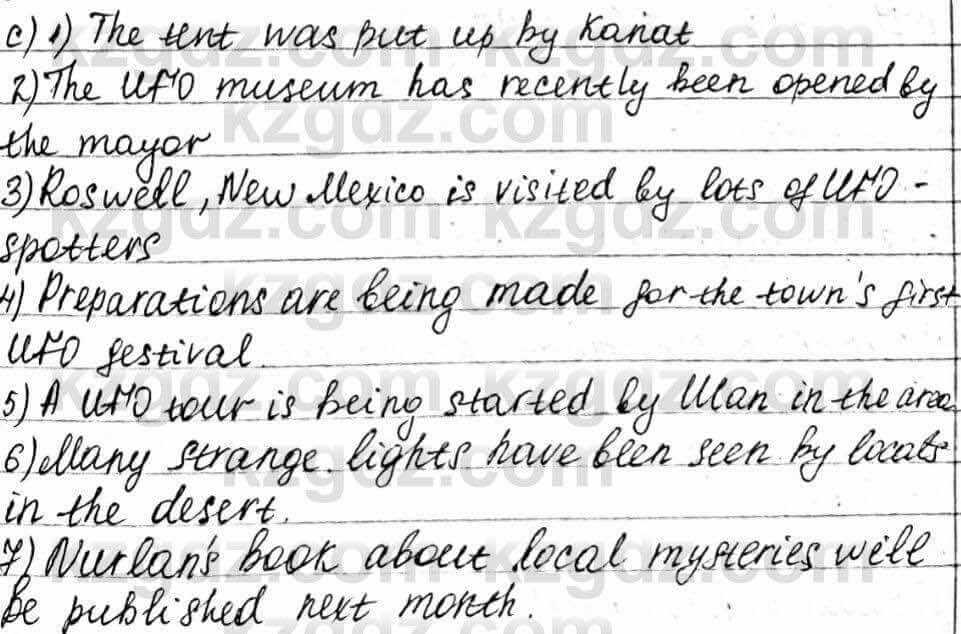 c) 1) The tent was put up by Kanat
2) The UFO museum has recently been opened by
the mayor
3) Roswell, New Mexico is visited by lots of UFO -
spotters
4) Preparations are being made for the town's first
UFO festival.
5) A UFO tour is being started by Ulan in the area
6) Many strange lights have been seen by locals
in the desert.
7) Nurlan's book about local mysteries will
be published next month.
kzgdz.com